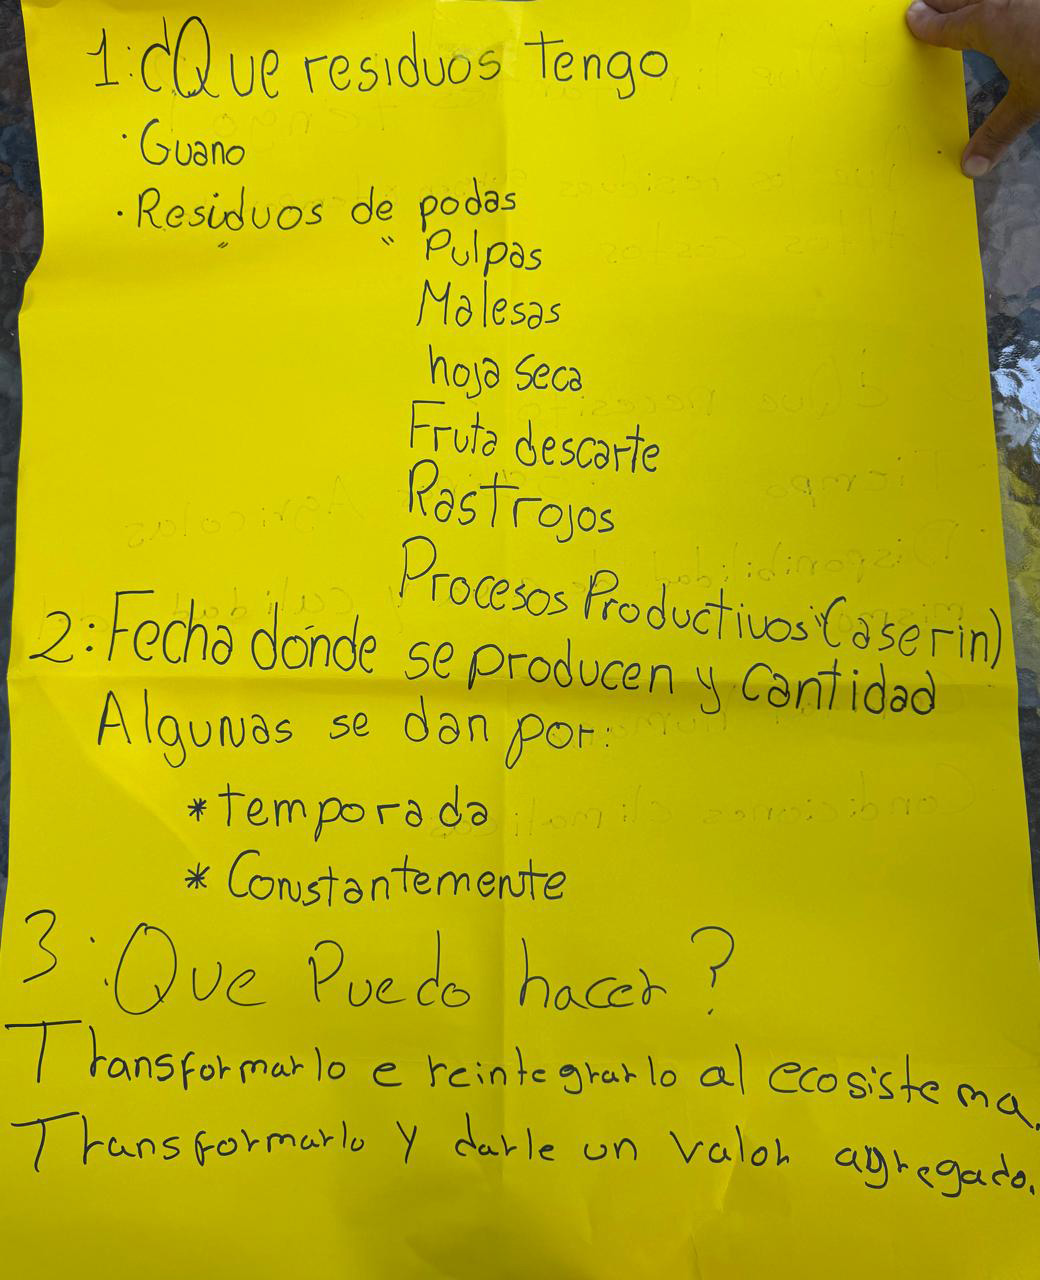 1: ¿Que residuos Tengo
· Guano
· Residuos de podas
" " Pulpas
Malesas
hoja seca
Fruta descarte
Rastrojos
Procesos Productivos (Caserin)
2: Fecha dónde se producen y Cantidad
Algunas se dan por:
* temporada
* Constantemente
3: Que Puedo hacer?
Transformarlo e reintegrarlo al ecosistema.
Transformarlo y darle un valor agregado.